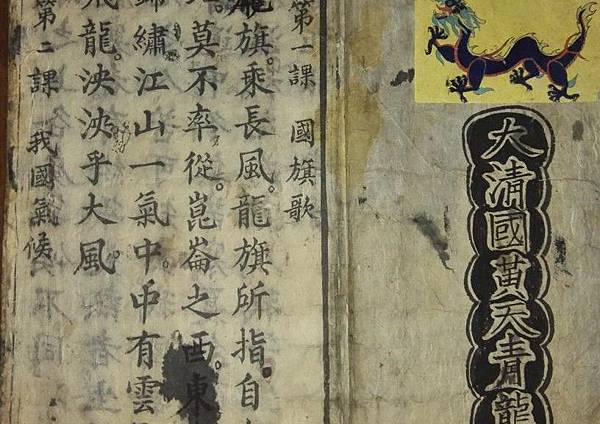 大清國黃天青龍
第一課 國旗歌
龍旗乘長風。龍旗所指自
莫不率從。崑崙之西東
錦繡江山一氣中。中有雲
龍。泱泱乎大風。
第二課 我國氣候